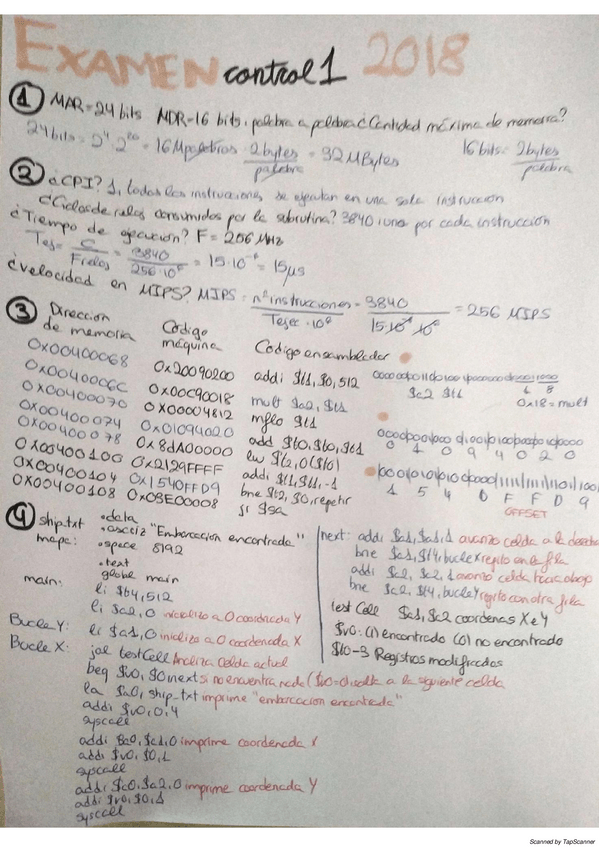 EXAMEN control 1 2018
1 MAR=24 bits MDR=16 bits. palabra a palabra ¿Cantidad máxima de memoria?
24 bits = 2⁴·2²⁰ = 16 Mpalabras · 2 bytes/palabra = 32 MBytes 16 bits = 2 bytes/palabra
2 ¿CPI? 1, todas las instrucciones se ejecutan en una sola instrucción
¿Ciclos de reloj consumidos por la subrutina? 3840 : uno por cada instrucción
¿Tiempo de ejecución? F = 256 MHz
Tej = C/Freloj = 3840/256·10⁶ = 15·10⁻⁶ = 15 µs
¿velocidad en MIPS? MIPS = nº instrucciones/Tejec·10⁶ = 3840/15·10⁻⁶·10⁶ = 256 MIPS
3 Dirección de memoria Código máquina Codigo ensamblador
0x00400068 0x20090200 addi $t1, $0, 512
0x0040006C 0x00C90018 mult $a2, $t1
0x00400070 0x00004812 mflo $t1
0x00400074 0x01094020 add $t0, $t0, $t1
0x00400078 0x8dA00000 lw $t2, 0($t0)
0x00400100 0x2129FFFF addi $t1, $t1, -1
0x00400104 0x1540FFD9 bne $t2, $0, repetir
0x00400108 0x03E00008 jr $ra
$a2 $t1
1 8
0x18 = mult
0 1 0 9 4 0 2 0
1 5 4 0 F F D 9
OFFSET
4 .data
ship_txt .asciiz "Embarcacion encontrada"
mapa: .space 8192
.text
globl main
main: li $t4, 512
li $a2, 0 inicializo a 0 coordenada Y
Bucle Y: li $a1, 0 inicializo a 0 coordenada X
Bucle X: jal testCell Analiza celda actual
beq $v0, $0 next si no encuentra nada ($v0=0) salta a la siguiente celda
la $a0, ship_txt imprime "embarcacion encontrada"
addi $v0, 0, 4
syscall
addi $a0, $a1, 0 imprime coordenada X
addi $v0, $0, 1
syscall
addi $a0, $a2, 0 imprime coordenada Y
addi $v0, $0, 1
syscall
next: addi $a1, $a1, 1 avanzo celda a la derecha
bne $a1, $t4, bucleX repito en la fila
addi $a2, $a2, 1 avanzo celda hacia abajo
bne $a2, $t4, bucleY repito con otra fila
test Cell $a1, $a2 coordenas X e Y
$v0: (1) encontrado (0) no encontrado
$t0-3 Registros modificados
Scanned by TapScanner